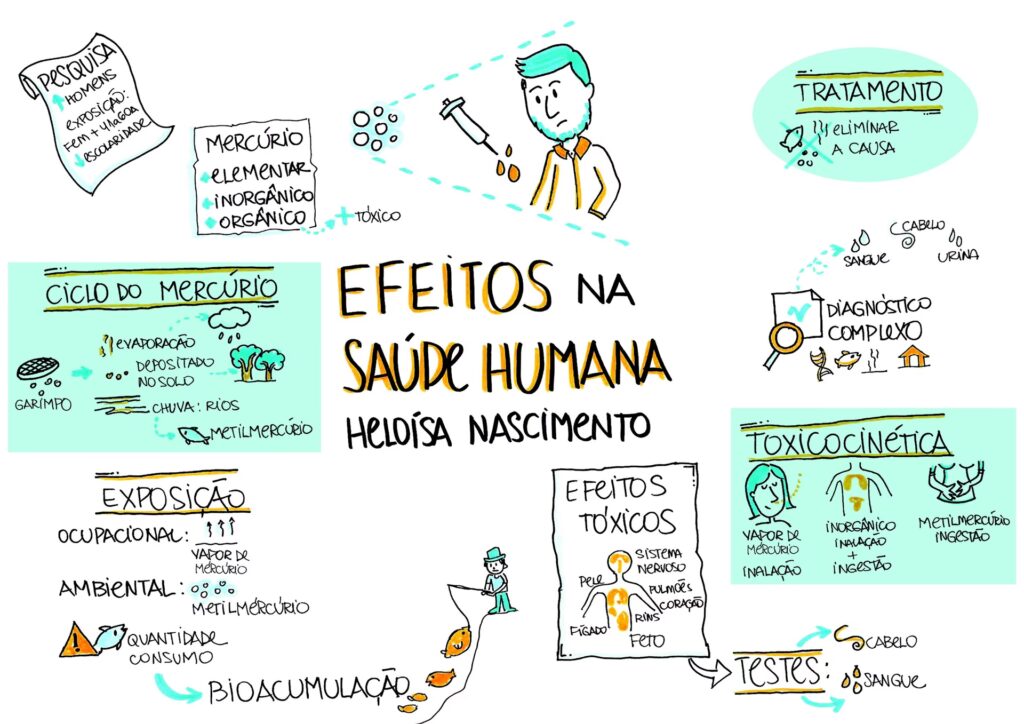 PESQUISA
HOMENS
EXPOSIÇÃO:
FEM + 41 LAGOA
ESCOLARIDADE
MERCÚRIO
ELEMENTAR
INORGÂNICO
ORGÂNICO
+ TÓXICO
TRATAMENTO
ELIMINAR
A CAUSA
SANGUE
CABELO
URINA
DIAGNÓSTICO
COMPLEXO
CICLO DO MERCÚRIO
EVAPORAÇÃO
DEPOSITADO
NO SOLO
GARIMPO
CHUVA: RIOS
METILMERCÚRIO
EFEITOS NA
SAÚDE HUMANA
HELOÍSA NASCIMENTO
TOXICOCINÉTICA
VAPOR DE
MERCÚRIO
INALAÇÃO
INORGÂNICO
INALAÇÃO
+
INGESTÃO
METILMERCÚRIO
INGESTÃO
EXPOSIÇÃO
OCUPACIONAL:
VAPOR DE
MERCÚRIO
AMBIENTAL:
METILMÉRCÚRIO
!
QUANTIDADE
CONSUMO
BIOACUMULAÇÃO
EFEITOS
TÓXICOS
SISTEMA
NERVOSO
PELE
PULMÕES
CORAÇÃO
FÍGADO
RINS
FETO
TESTES:
CABELO
SANGUE